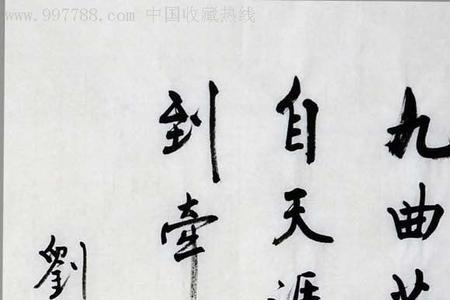 www.997788.com 中国收藏热线
九曲
自天涯
到牵
劉